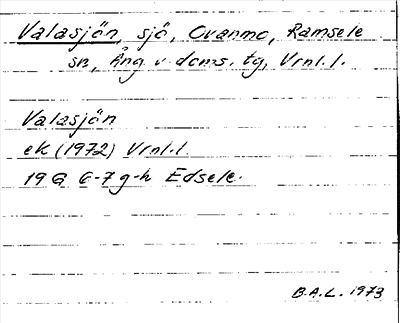 Valasjön, sjö, Ovanmo, Ramsele
sn, Ång v doms. tg, Vrnl. l.
Valasjön
ek (1972) Vrnl. l.
19 G 6-7 g-h Edsele.
B.A.L. 1973